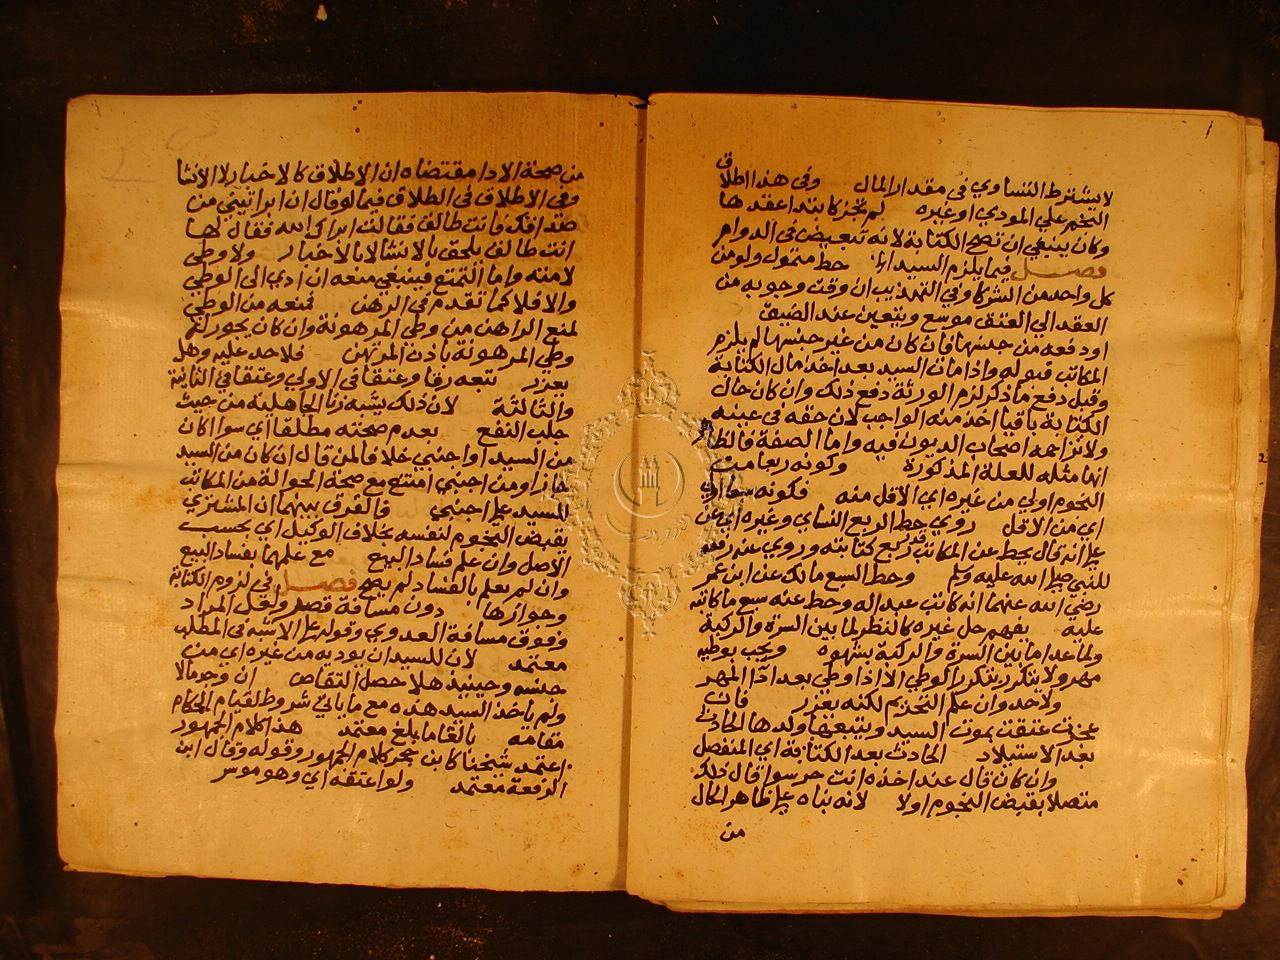 لا يشترط التساوي في مقدار المال وفي هذا اطلاق
التحكم علي المودي او غيره لم تجز كابتداء عقدها
وكان ينبغي ان تصح الكتابة لانه تبعيض في الدوام
فصل فيما يلزم السيد حط متمول ولو من
كل واحد من الشركا وفي التهذيب ان وقت وجوبه من
العقد الي العتق موسع ويتعين عند الضيق
او دفعه من جنسها فان كان من غير جنسها لم يلزم
المكاتب قبوله واذا مات السيد بعد اخذ مال الكتابة
وقبل دفع ما ذكر لزم الورثة دفع ذلك وان كان مال
الكتابة باقيا اخذ منه الواجب لان حقه في عينه
ولا تزاحمه اصحاب الديون فيه واما الصفة فالظاهر
انها مثله للعلة المذكورة وكونه ربعا من
النجوم اولي من غيره اي الاقل منه فكونه سبعا اولي
اي من الاقل روي حط الربع النساي وغيره اي عن
علي انه قال يحط عن المكاتب قدر ربع كتابته وروي عنه رفعه
للنبي صلى الله عليه وسلم وحط السبع مالك عن ابن عمر
رضي الله عنهما انه كاتب عبدا له وحط عنه سبع ما كاتبه
عليه يفهم حل غيره كالنظر لما بين السرة والركبة
ولما عدا ما بين السرة والركبة بشهوه ويجب بوطيه
مهر ولا يتكرر بتكرر الوطي الا اذا وطي بعد اداء المهر
ولا حد وان علم التحريم لكنه يعزر فان
عجزت عتقت بموت السيد ويتبعها ولدها الحادث
بعد الاستيلاد الحادث بعد الكتابة اي المنفصل
وان كان قال عند اخذه انت حر سوا قال ذلك
متصلا بقبض النجوم او لا لانه بناه على ظاهر الحال
من
من صحة الاداء مقتضاه ان الاطلاق كالاخبار لا الانشا
وفي الاطلاق في الطلاق فيما لو قال ان ابراتيني من
صداقك فانت طالق فقالت ابراك الله فقال لها
انت طالق يلحق بالانشا لا بالاخبار ولا وطي
لامته واما التمتع فينبغي منعه ان ادي الي الوطي
والا فلا كما تقدم في الرهن فمنعه من الوطي
لمنع الراهن من وطي المرهونة وان كان يجوز له
وطي المرهونة باذن المرتهن فلا حد عليه وهل
يعزر تتبعه رقا وعتقا في الاولي وعتقا في الثانية
والثالثة لان ذلك يشبه ربا الجاهلية من حيث
جلب النفع بعدم صحته مطلقا اي سوا كان
من السيد او اجنبي خلافا لمن قال ان كان من السيد
جاز او من اجنبي امتنع مع صحة الحوالة من المكاتب
للسيد على اجنبي فالفرق بينهما ان المشتري
يقبض النجوم لنفسه بخلاف الوكيل اي بحسب
الاصل وان علم فساد البيع مع علمها بفساد البيع
وان لم يعلم بالفساد لم يصح فصل في لزوم الكتابة
وجوازها دون مسافة قصر ولعل المراد
وفوق مسافة العدوي وقوله على الاشبه في المطلب
معتمد لان للسيد ان يوديه من غيره اي من
جنسه وحينيذ هلا حصل التقاص ان وجد مالا
ولم ياخذ السيد هذه مع ما ياتي شروط لقيام الحاكم
مقامه بالغا ما بلغ معتمد هذا كلام الجمهور
اعتمد شيخنا كابن حجر كلام الجمهور وقوله وقال ابن
الرفعة معتمد ولو اعتقه اي وهو موسر